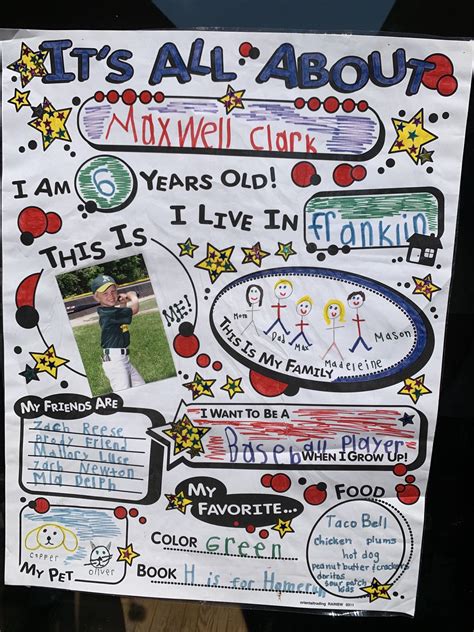 IT'S ALL ABOUT
Maxwell Clark
I AM 6 YEARS OLD!
I LIVE IN franklin
THIS IS ME!
Mom Dad Max Madeleine Mason
THIS IS MY FAMILY
MY FRIENDS ARE
Zach Reese
Brody Friend
Mallory Luse
Zach Newton
Mia Delph
I WANT TO BE A
Baseball Player
WHEN I GROW UP!
MY FAVORITE...
COLOR Green
BOOK H is for Homerun
FOOD
Taco Bell
chicken plums
hot dog
peanut butter & crackers
doritos
sour patch
kids
MY PET
copper oliver